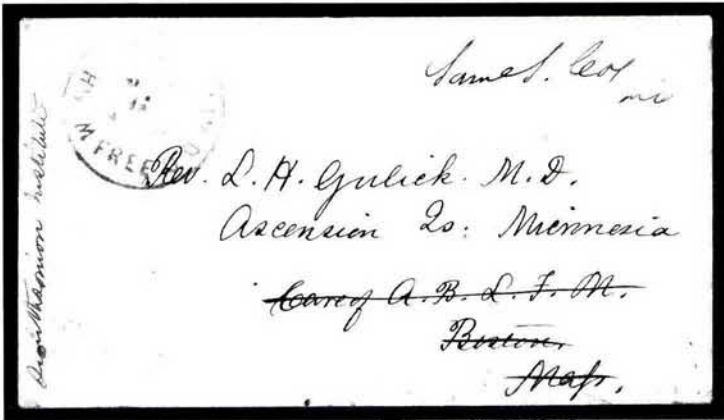 Saml. S. Cox
FREE
Rev. L. H. Gulick. M.D.
Ascension Is: Micronesia
Care of A. B. C. F. M.
Boston,
Mass.
Smithsonian Institute